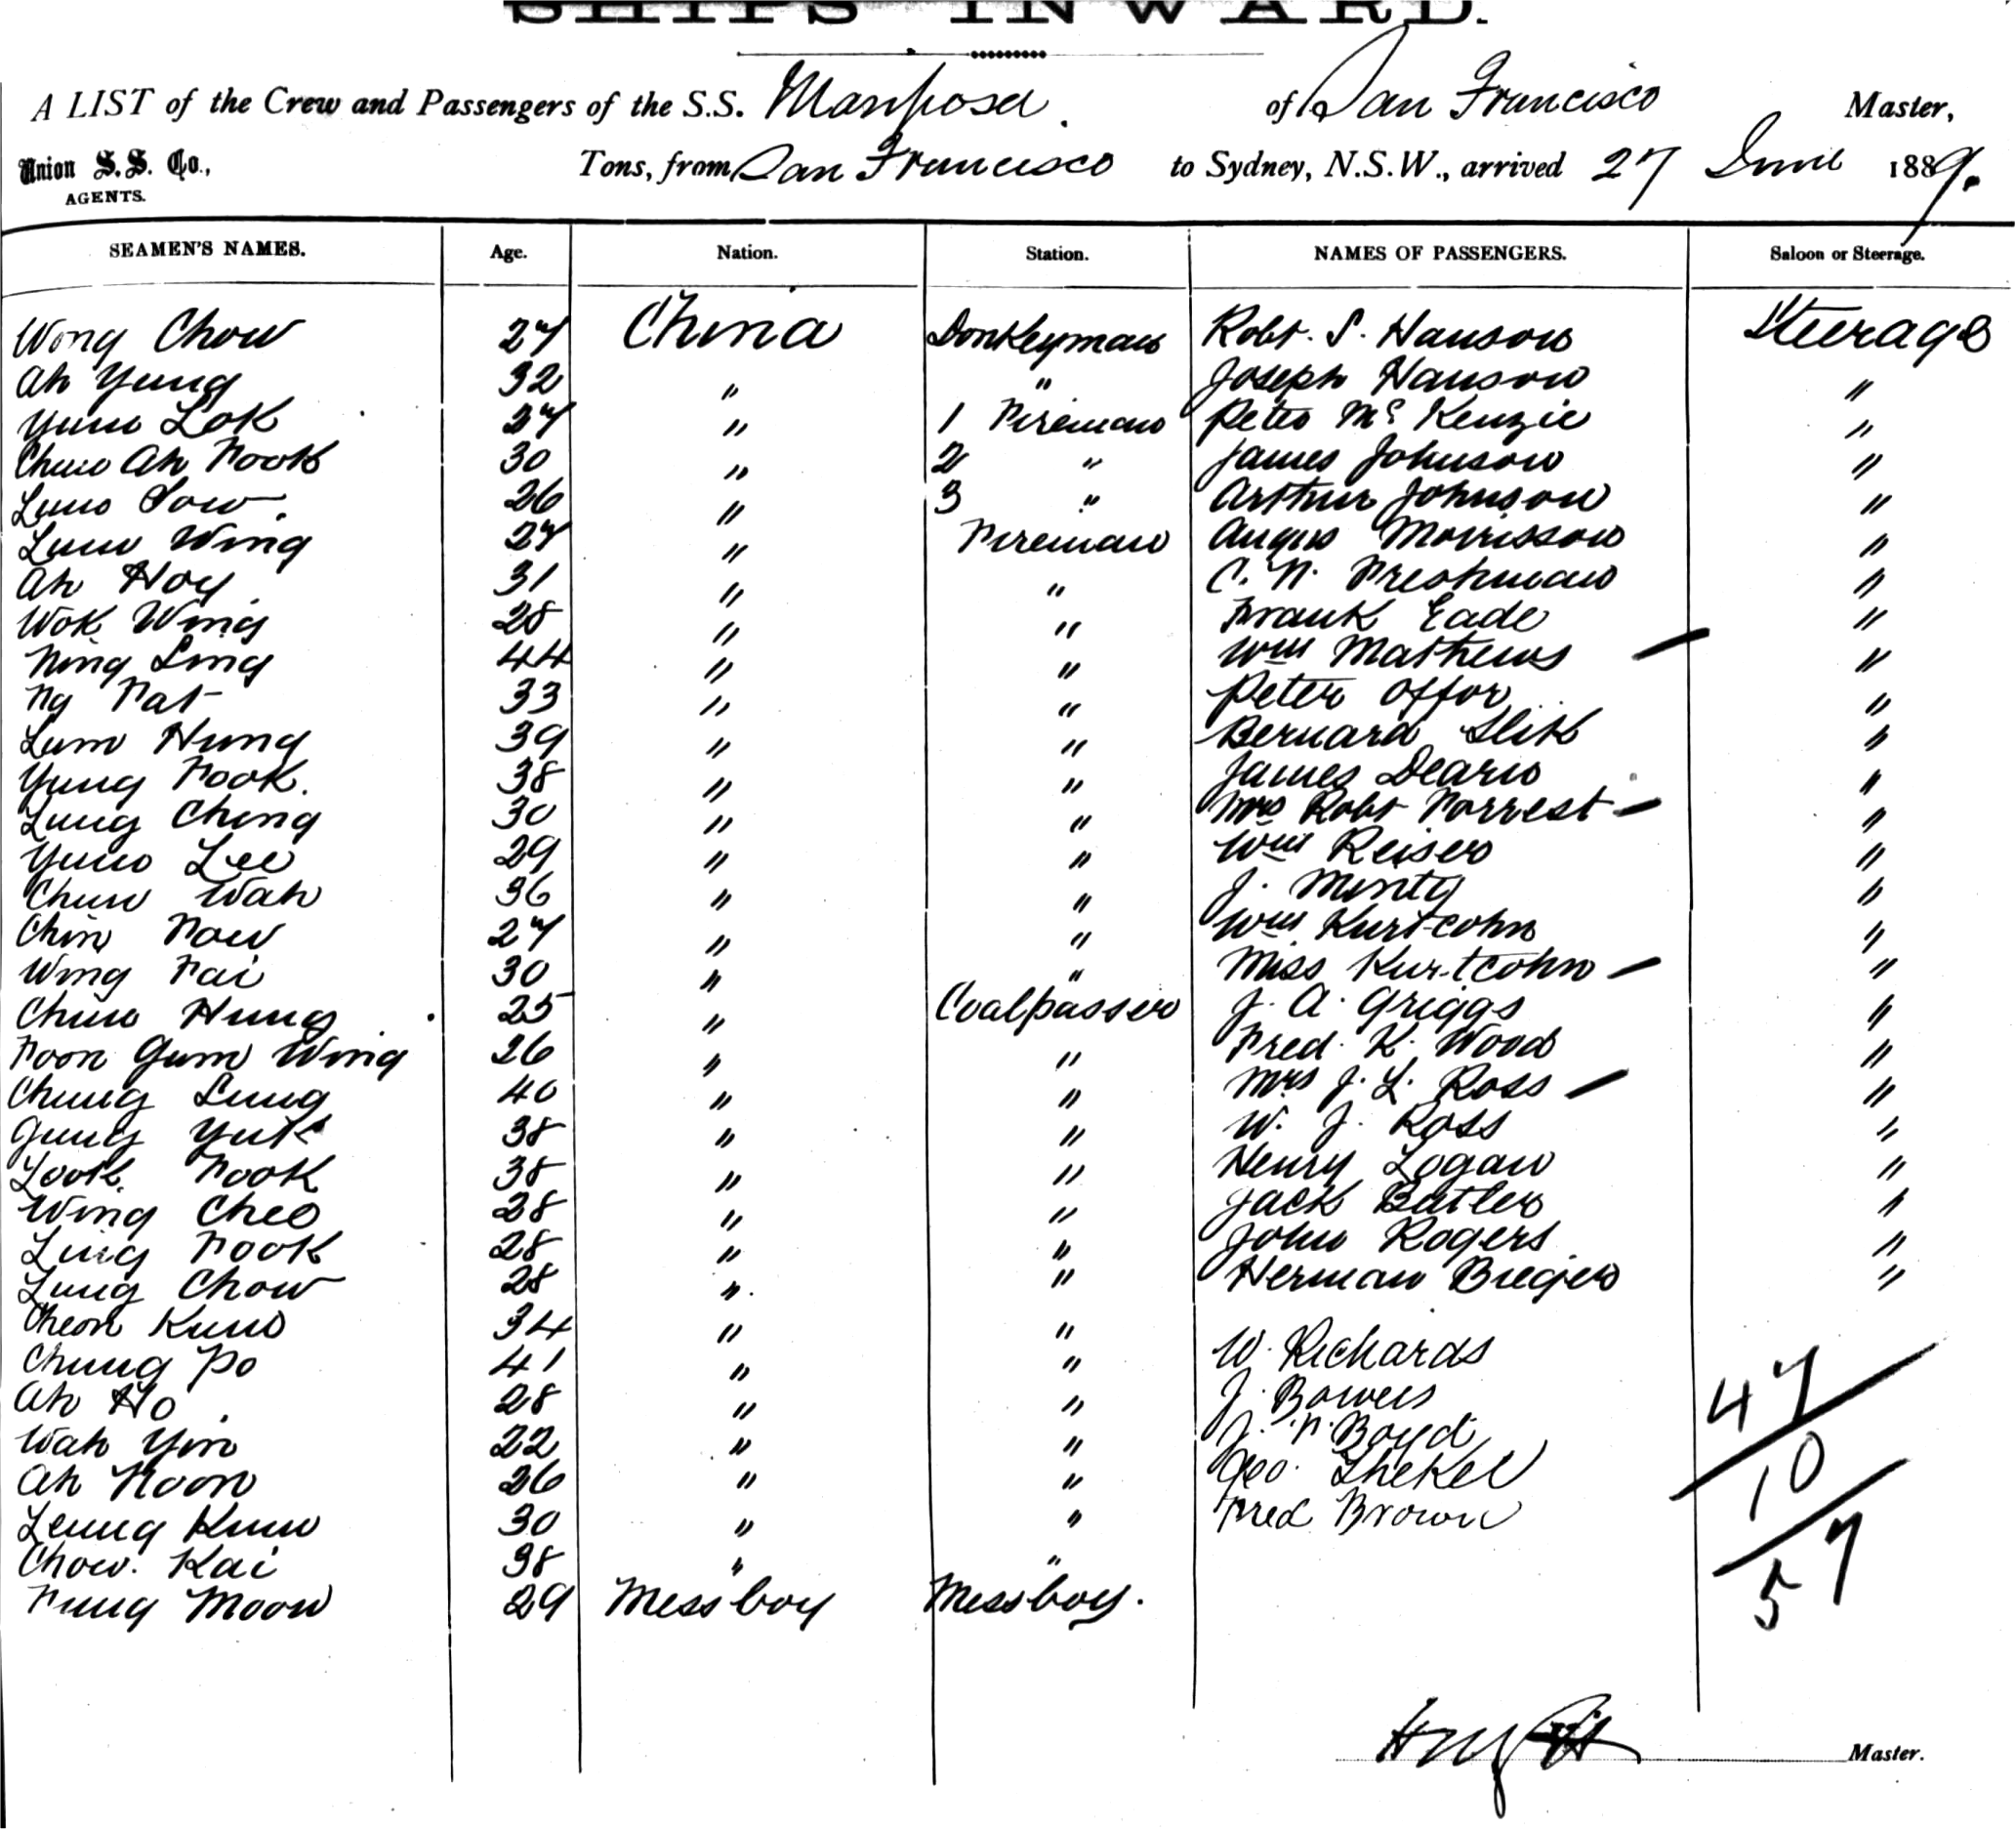 SHIPS INWARD.
A LIST of the Crew and Passengers of the S.S. Mariposa. of San Francisco Master,
Union S.S. Co., Tons, from San Francisco to Sydney, N.S.W., arrived 27 June 1889.
AGENTS.
SEAMEN'S NAMES. Age. Nation. Station. NAMES OF PASSENGERS. Saloon or Steerage.
Wong Chow 27 China Donkeyman Robt. S. Hanson Steerage
Ah Yung 32 " " Joseph Hanson "
Yum Lok 37 " 1 Fireman Peter McKenzie "
Chun Ah Fook 30 " 2 " James Johnson "
Lum Sow. 26 " 3 " Arthur Johnson "
Lum Wing 27 " Fireman Angus Morrisson "
Ah Hoy 31 " " C. N. Freshman "
Wok Wing 28 " " Frank Eade "
Ning Ling 44 " " Wm Mathews — "
Ng Fat 33 " " Peter Offor "
Lum Hung 39 " " Bernard Slik "
Yung Fook. 38 " " James Dearn "
Lung Ching 30 " " Mrs Robt Forrest — "
Yum Lee 29 " " Wm Reiser "
Chun Wah 36 " " J. Minty "
Chin Fow 27 " " Wm Kurtcohn "
Wing Fai 30 " " Miss Kurtcohn — "
Chun Hung 25 " Coalpasser J. A. Griggs "
Foon Gum Wing 26 " " Fred. K. Wood "
Chung Lung 40 " " Mrs J. L. Ross — "
Jung Yut 38 " " W. J. Ross "
Look Fook 38 " " Henry Logan "
Wing Cheo 28 " " Jack Butler "
Ling Fook 28 " " John Rogers "
Lung Chow 28 " " Herman Bieger "
Cheon Kum 34 " "
Chung Po 41 " " W. Richards
Ah Ho 28 " " J. Bowers 47
Wah Yin 22 " " J. F. Boyd
Ah Noon 26 " " Geo. Shekel 10
Leung Kum 30 " " Fred Brown
Chow. Kai 38 " " 57
Fung Moon 29 Messboy Messboy.
Master.